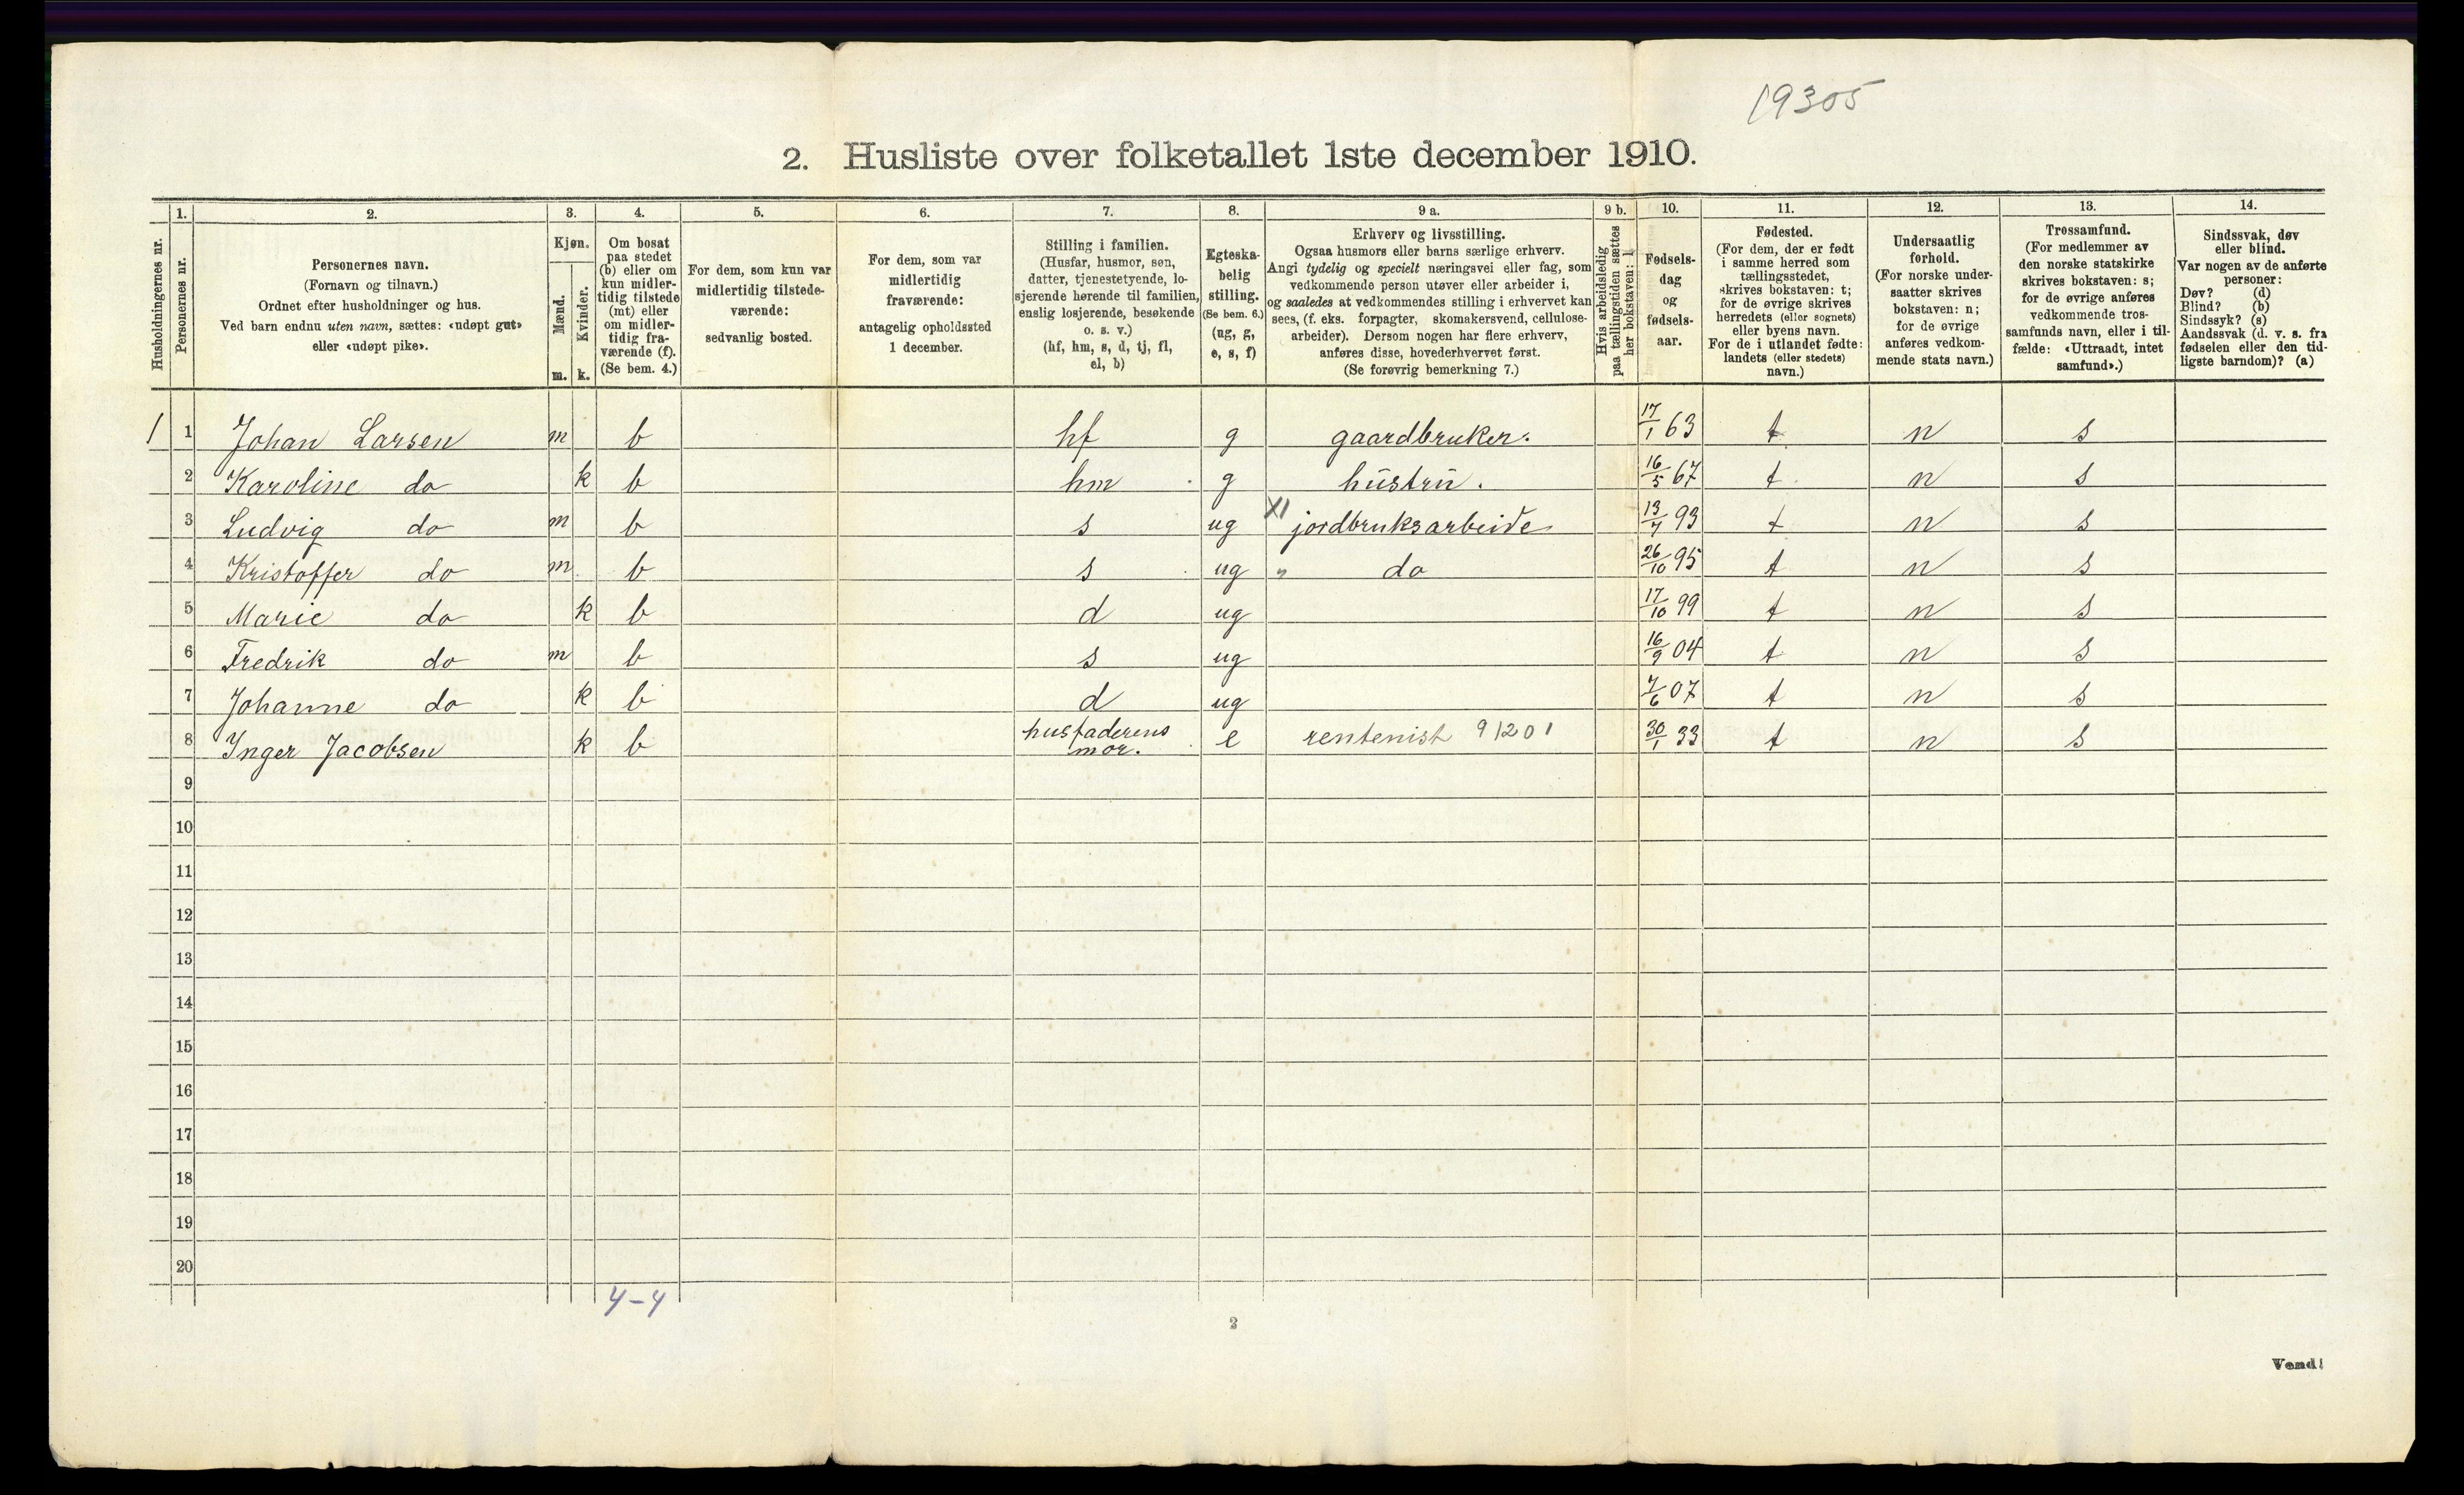 19305
2. Husliste over folketallet 1ste december 1910.
Husholdningernes nr.
1.
Personernes nr.
2.
Personernes navn.
(Fornavn og tilnavn.)
Ordnet efter husholdninger og hus.
Ved barn endnu uten navn, sættes: «udøpt gut»
eller «udøpt pike».
3.
Kjøn.
Mænd.
m.
Kvinder.
k.
4.
Om bosat
paa stedet
(b) eller om
kun midler-
tidig tilstede
(mt) eller
om midler-
tidig fra-
værende (f).
(Se bem. 4.)
5.
For dem, som kun var
midlertidig tilstede-
værende:
sedvanlig bosted.
6.
For dem, som var
midlertidig
fraværende:
antagelig opholdssted
1 december.
7.
Stilling i familien.
(Husfar, husmor, søn,
datter, tjenestetyende, lo-
sjerende hørende til familien,
enslig losjerende, besøkende
o. s. v.)
(hf, hm, s, d, tj, fl,
el, b)
8.
Egteska-
belig
stilling.
(Se bem. 6.)
(ug, g,
e, s, f)
9 a.
Erhverv og livsstilling.
Ogsaa husmors eller barns særlige erhverv.
Angi tydelig og specielt næringsvei eller fag, som
vedkommende person utøver eller arbeider i,
og saaledes at vedkommendes stilling i erhvervet kan
sees, (f. eks. forpagter, skomakersvend, cellulose-
arbeider). Dersom nogen har flere erhverv,
anføres disse, hovederhvervet først.
(Se forøvrig bemerkning 7.)
9 b.
Hvis arbeidsledig
paa tællingstiden sættes
her bokstaven: l
10.
Fødsels-
dag
og
fødsels-
aar.
11.
Fødested.
(For dem, der er født
i samme herred som
tællingsstedet,
skrives bokstaven: t;
for de øvrige skrives
herredets (eller sognets)
eller byens navn.
For de i utlandet fødte:
landets (eller stedets)
navn.)
12.
Undersaatlig
forhold.
(For norske under-
saatter skrives
bokstaven: n;
for de øvrige
anføres vedkom-
mende stats navn.)
13.
Trossamfund.
(For medlemmer av
den norske statskirke
skrives bokstaven: s;
for de øvrige anføres
vedkommende tros-
samfunds navn, eller i til-
fælde: «Uttraadt, intet
samfund».)
14.
Sindssvak, døv
eller blind.
Var nogen av de anførte
personer:
Døv? (d)
Blind? (b)
Sindssyk? (s)
Aandssvak (d. v. s. fra
fødselen eller den tid-
ligste barndom)? (a)
1 1 Johan Larsen m b hf g gaardbruker. 17/1 63 t n s
2 Karoline do k b hm g hustru. 16/5 67 t n s
3 Ludvig do m b s ug XI jordbruksarbeide 13/7 93 t n s
4 Kristoffer do m b s ug " do 26/10 95 t n s
5 Marie do k b d ug 17/10 99 t n s
6 Fredrik do m b s ug 16/9 04 t n s
7 Johanne do k b d ug 7/6 07 t n s
8 Inger Jacobsen k b husfaderens mor. e rentenist 91201 30/1 33 t n s
9
10
11
12
13
14
15
16
17
18
19
20
4-4
2
Vend!